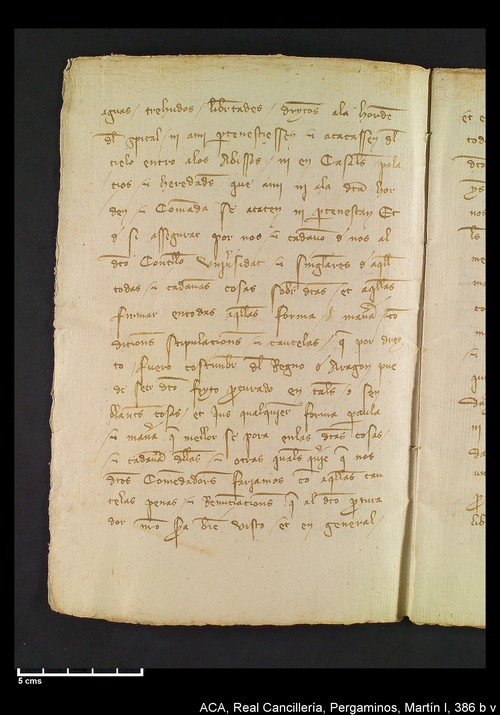 aguas / trehudos / libertades / dreytos ala horden
del spital / ni ami pertenesciessen et acatassen del
cielo entro alos Abissos / ni en Casales pala
cios / et heredades que ami ni ala dita hor
den / et Comanda se acaten ni pertenescan Et
por nos et cadauno de nos al
dito Concello Uniuersidat / et singulares de aquell
todas / et cadaunas cosas sobre ditas / et aquellas
firmar en todas aquellas forma / manera / con
diciones stipulaciones et cautelas / que por drey
to / fuero costumbre del Regno de Aragon pue
de ser dito feyto procurado en tales o sen
blantes cosas / et jus qualquier forma paraula
et manera que mellor se pora en las ditas cosas /
et cadauna dellas / et otras quales quiere que nos
ditos Comendadores fagamos con aquellas cau
telas penas / et Renunciaciones que al dito procura
dor nuestro sera bien visto / et en general /
5 cms
ACA, Real Cancilleria, Pergaminos, Martín I, 386 b v